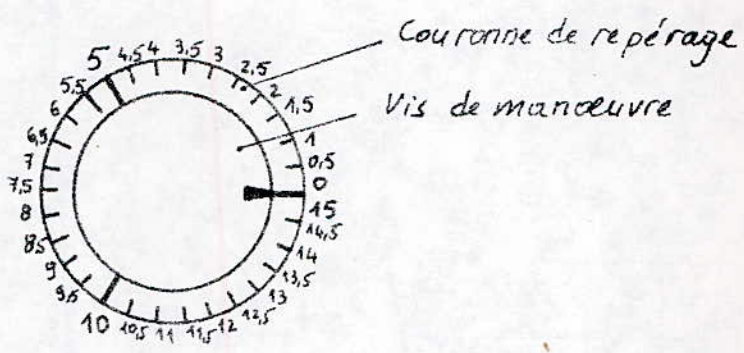 Couronne de repérage
Vis de manœuvre
0
0,5
1
1,5
2
2,5
3
3,5
4
4,5
5
5,5
6
6,5
7
7,5
8
8,5
9
9,5
10
10,5
11
11,5
12
12,5
13
13,5
14
14,5
15